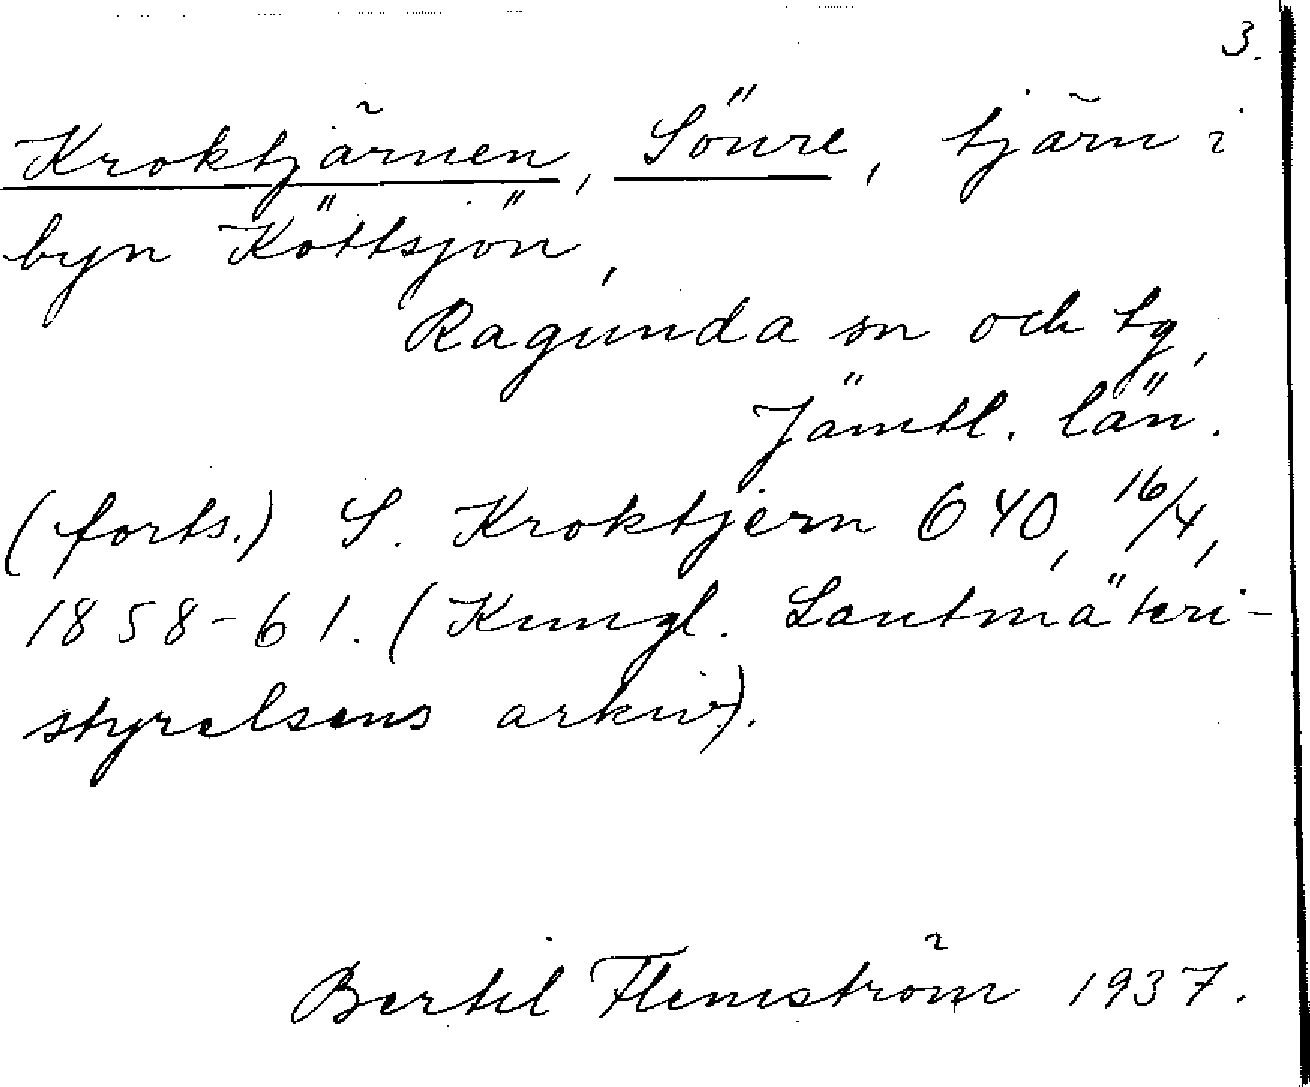 3.
Kroktjärnen, Sönre, tjärn i
byn Köttsjön,
Ragunda sn och tg,
Jämtl. län.
(forts.) S. Kroktjern 640, 16/4,
1858-61. (Kungl. Lantmäteri-
styrelsens arkiv).
Bertil Flemström 1937.